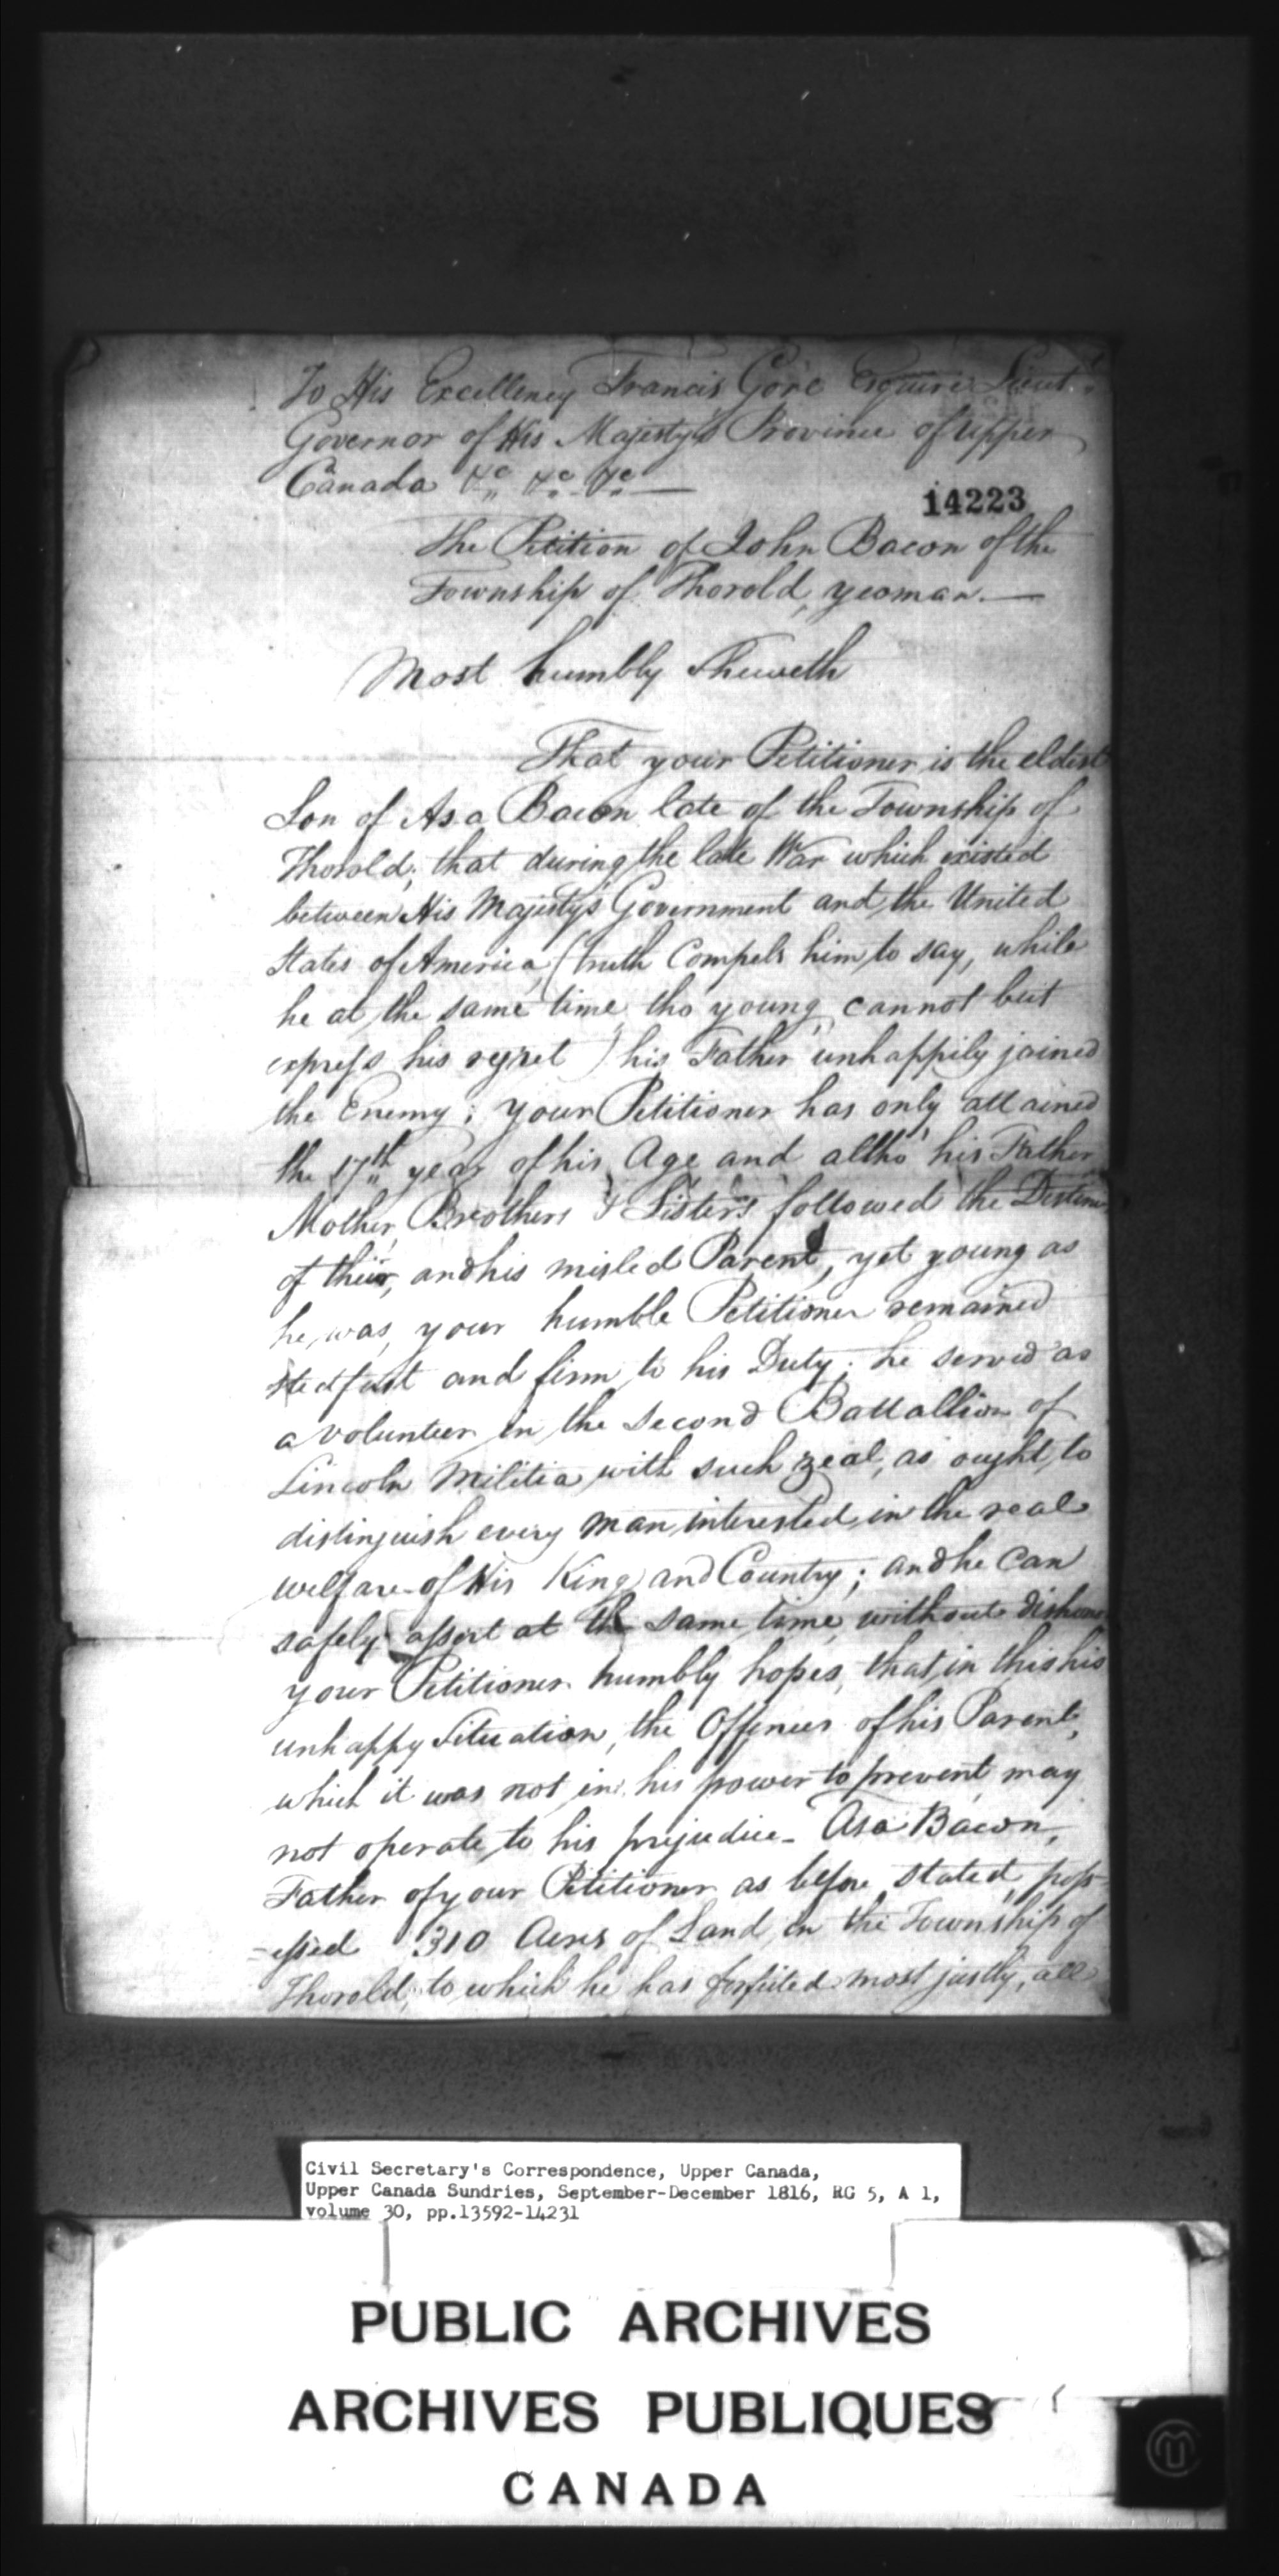 To His Excellency Francis Gore Esquire Lieut.
Governor of His Majesty's Province of Upper
Canada &c &c &c —
14223
The Petition of John Bacon of the
Township of Thorold, yeoman. —
Most humbly Sheweth
That your Petitioner is the eldest
Son of Asa Bacon late of the Township of
Thorold; that during the late War which existed
between His Majesty's Government and the United
States of America, (truth Compels him to say, while
he at the same time tho young, cannot but
express his regret) his Father unhappily joined
the Enemy; your Petitioner has only attained
the 17th year of his Age and altho' his Father
Mother, Brothers & Sisters followed the
of their, and his misled Parent, yet young as
he was, your humble Petitioner remained
stedfast and firm to his Duty; he served as
a volunteer in the second Battallion of
Lincoln Militia with such zeal, as ought to
distinguish every man interested in the real
welfare of His King and Country; and he can
safely assert at the same time without
your Petitioner humbly hopes, that in this his
unhappy Situation, the Offences of his Parent,
which it was not in his power to prevent may
not operate to his prejudice - Asa Bacon,
Father of your Petitioner as before stated, poss-
-essed 310 Acres of Land in the Township of
Thorold, to which he has forfeited most justly, all
Civil Secretary's Correspondence, Upper Canada,
Upper Canada Sundries, September-December 1816, RG 5, A 1,
volume 30, pp.13592-14231
PUBLIC ARCHIVES
ARCHIVES PUBLIQUES
CANADA